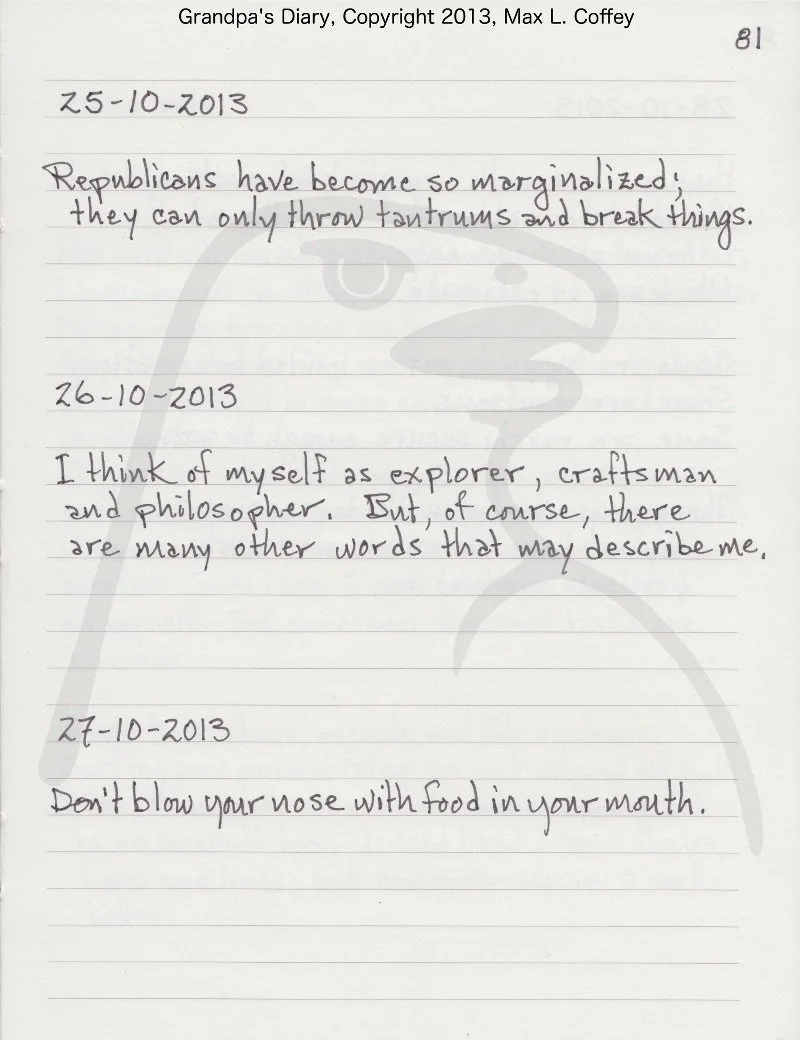 Grandpa's Diary, Copyright 2013, Max L. Coffey
81
25-10-2013
Republicans have become so marginalized;
they can only throw tantrums and break things.
26-10-2013
I think of myself as explorer, craftsman
and philosopher. But, of course, there
are many other words that may describe me.
27-10-2013
Don't blow your nose with food in your mouth.